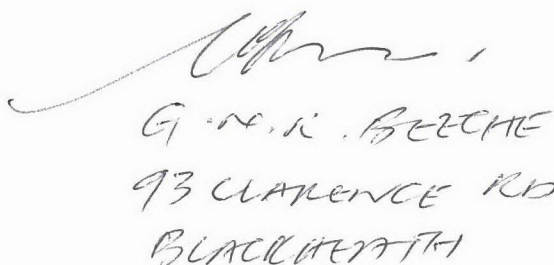 G.N.K. BEECHE
93 CLARENCE RD
BLACKHEATH